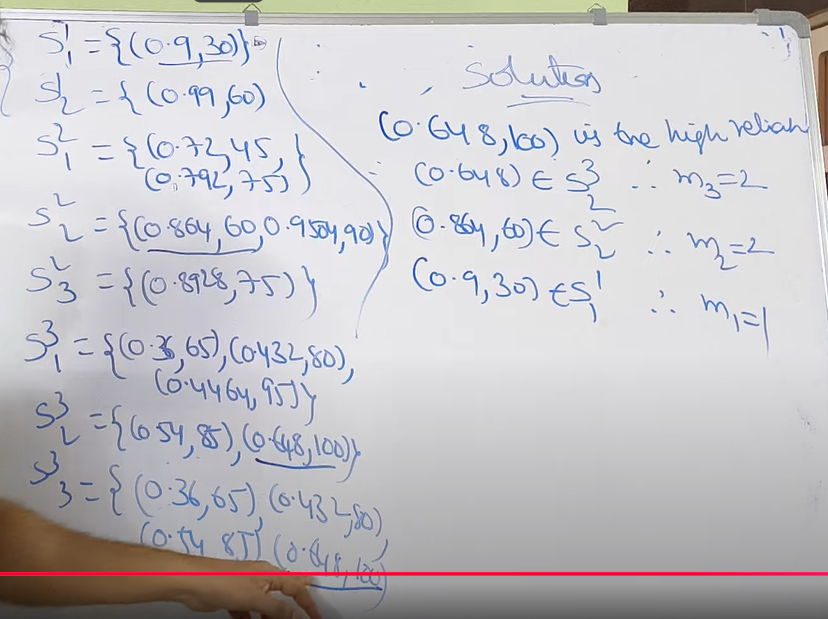 S₁¹ = {(0.9,30)}
S₂¹ = {(0.99,60)
S₁² = {(0.72,45,
(0.792,75)}
S₂² = {(0.864,60,0.9504,90)}
S₃² = {(0.8928,75)}
S₁³ = {(0.36,65),(0.432,80),
(0.4464,95)}
S₂³ = {(0.54,85),(0.648,100)}
S₃³ = {(0.36,65),(0.432,80),
(0.54,85)(0.648,100)
Solution
(0.648,100) is the high reliab
(0.648) ∈ S₂³ ∴ m₃=2
(0.864,60) ∈ S₂² ∴ m₂=2
(0.9,30) ∈ S₁¹ ∴ m₁=1